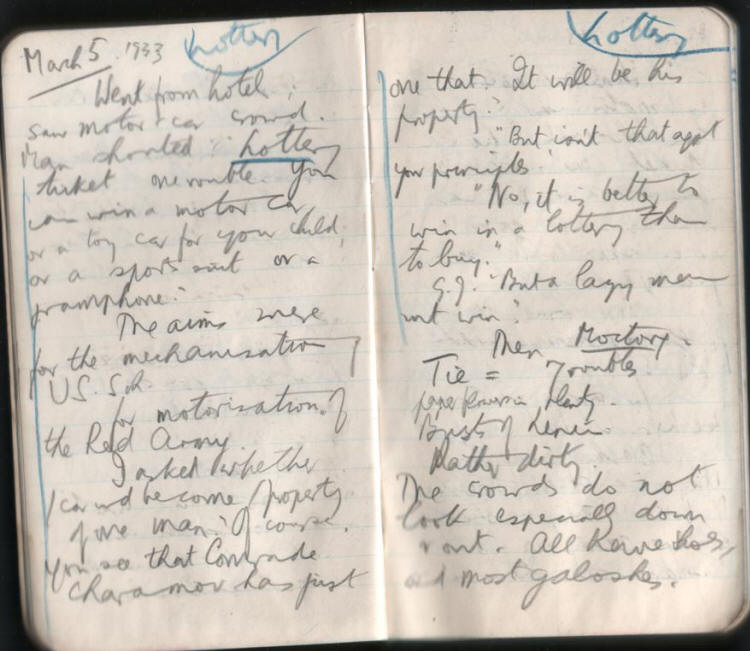 March 5. 1933 Lottery
Went from hotel;
saw motor car crowd.
Man shouted: "Lottery
ticket one rouble. You
can win a motor car,
or a toy car for your child,
or a sports suit or a
gramophone."
The aims were
for the mechanisation of
U.S.S.R.
for motorisation of
the Red Army.
I asked whether
/car wd become/property
of one man? "Of course.
You see that Comrade
Charamov has just
Lottery
one that. It will be his
property."
"But isn't that agst
your principles"
"No, it is better to
win in a lottery than
to buy."
G.J. "But a lazy man
mt win."
Then
Tie = 7 roubles
plenty.
Busts of Lenin.
Rather dirty.
The crowds do not
look especially down
& out. All have shoes,
and most galoshes.